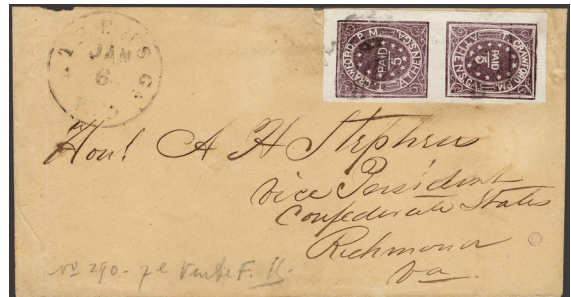 ATHENS GA.
JAN
6
T. CRAWFORD, P.M. ATHENS, GA.
PAID
5
T. CRAWFORD, P.M. ATHENS, GA.
PAID
5
Honl A H Stephens
Vice President
Confederate States
Richmond
Va.
No 290 - 7e Vente F.